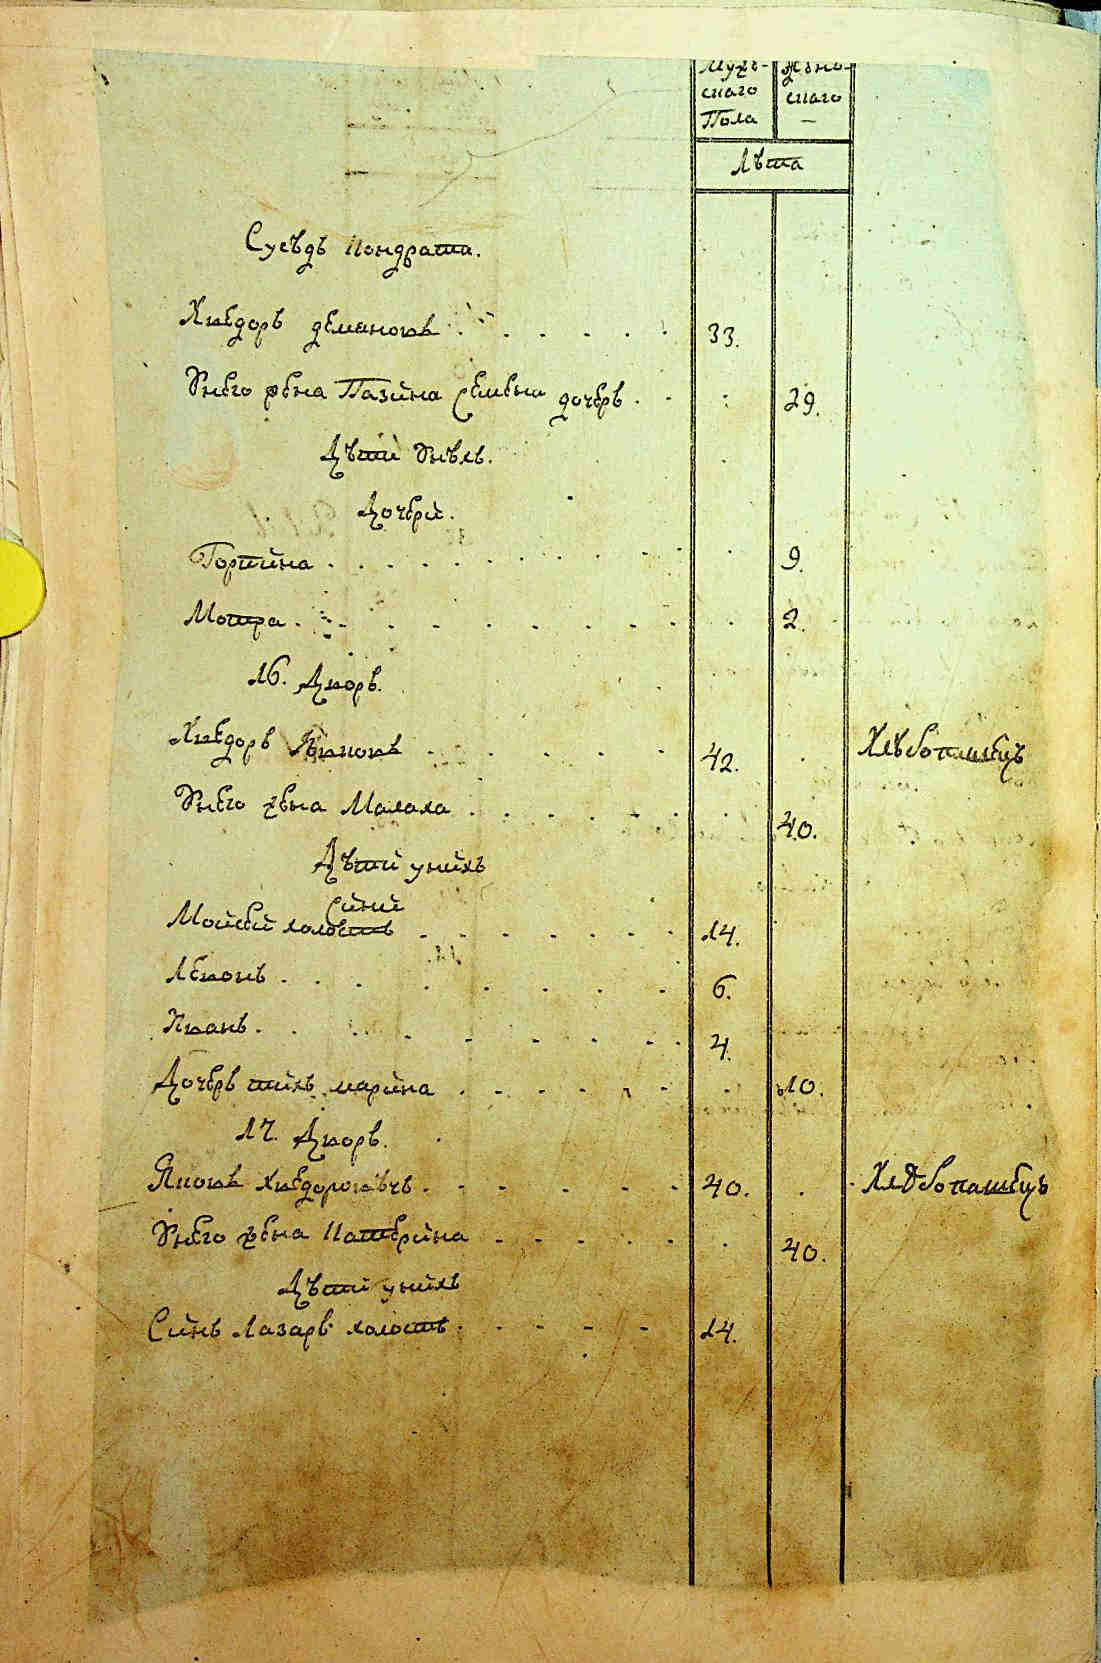 Мужъ-
скаго
Пола
Женъ-
скаго
Лѣта
Сусѣдъ Кондрати.
Хведоръ демановъ 33.
Унего жена Пазина Семена дочерь 29.
Дѣти Унѣхъ.
Дочери.
Горпина 9.
Мотра 2.
16. Дворъ.
Хведоръ 42. Хлѣбопашецъ
Унего жена Малаха 40.
Дѣти унихъ
Сини
Мойсей холостъ 14.
Левонъ 6.
Иванъ 4.
Дочерь тихъ марина 10.
17. Дворъ.
Яковъ Хведоровъчъ 40. Хлѣбопашецъ
Унего жена Катерина 40.
Дѣти унихъ
Синъ Лазаръ холостъ 14.